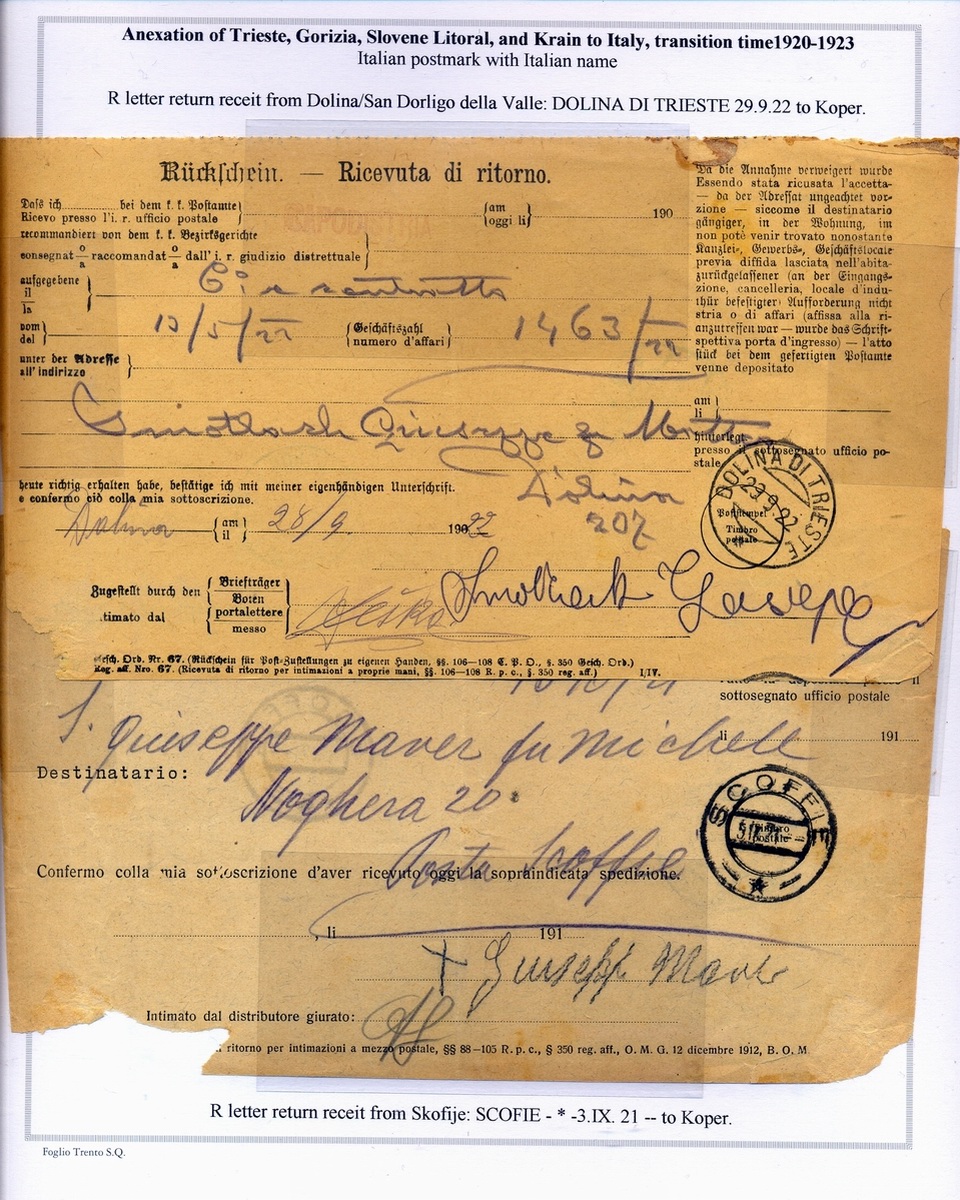 Anexation of Trieste, Gorizia, Slovene Litoral, and Krain to Italy, transition time1920-1923
Italian postmark with Italian name
R letter return receit from Dolina/San Dorligo della Valle: DOLINA DI TRIESTE 29.9.22 to Koper.
Rückschein. — Ricevuta di ritorno.
Daß ich bei dem k. k. Postamte
Ricevo presso l'i. r. ufficio postale
am
oggi li
190
recommandiert von dem k. k. Bezirksgerichte
consegnat o/a raccomandat o/a dall' i. r. giudizio distrettuale
aufgegebene
il
la
vom
del
13/5/22
Geschäftszahl
numero d'affari
1463/22
unter der Adresse
all' indirizzo
Giuseppe
Dolina
207
heute richtig erhalten habe, bestätige ich mit meiner eigenhändigen Unterschrift.
e confermo ciò colla mia sottoscrizione.
Dolina
am
il
28/9
190 22
Zugestellt durch den
.timato dal
Briefträger
Boten
portalettere
messo
Gesch. Ord. Nr. 67. (Rückschein für Post-Zustellungen zu eigenen Handen, §§. 106—108 C. P. O., §. 350 Gesch. Ord.)
Reg. aff. Nro. 67. (Ricevuta di ritorno per intimazioni a proprie mani, §§. 106—108 R. p. c., §. 350 reg. aff.) I/IV.
Da die Annahme verweigert wurde
Essendo stata ricusata l'accetta-
— da der Adressat ungeachtet vor-
zione — siccome il destinatario
gängiger, in der Wohnung, im
non potè venir trovato nonostante
Kanzlei-, Gewerbs-, Geschäftslocale
previa diffida lasciata nell'abita-
zurückgelassener (an der Eingangs-
zione, cancelleria, locale d'indu-
thür befestigter) Aufforderung nicht
stria o di affari (affissa alla ri-
anzutreffen war — wurde das Schrift-
spettiva porta d'ingresso) — l'atto
stück bei dem gefertigten Postamte
venne depositato
am
li
hinterlegt
presso il sottosegnato ufficio po-
stale
DOLINA DI TRIESTE
29.9.22
Poststempel
Timbro
postale
sottosegnato ufficio postale
li 191
Giuseppe Maver fu Michele
Destinatario:
Noghera 20
Posta Scoffie
SCOFFIE
Timbro
postale
Confermo colla mia sottoscrizione d'aver ricevuto oggi la sopraindicata spedizione.
, li 191
Intimato dal distributore giurato:
ritorno per intimazioni a mezzo postale, §§ 88–105 R. p. c., § 350 reg. aff., O. M. G. 12 dicembre 1912, B. O. M.
R letter return receit from Skofije: SCOFIE - * -3.IX. 21 -- to Koper.
Foglio Trento S.Q.